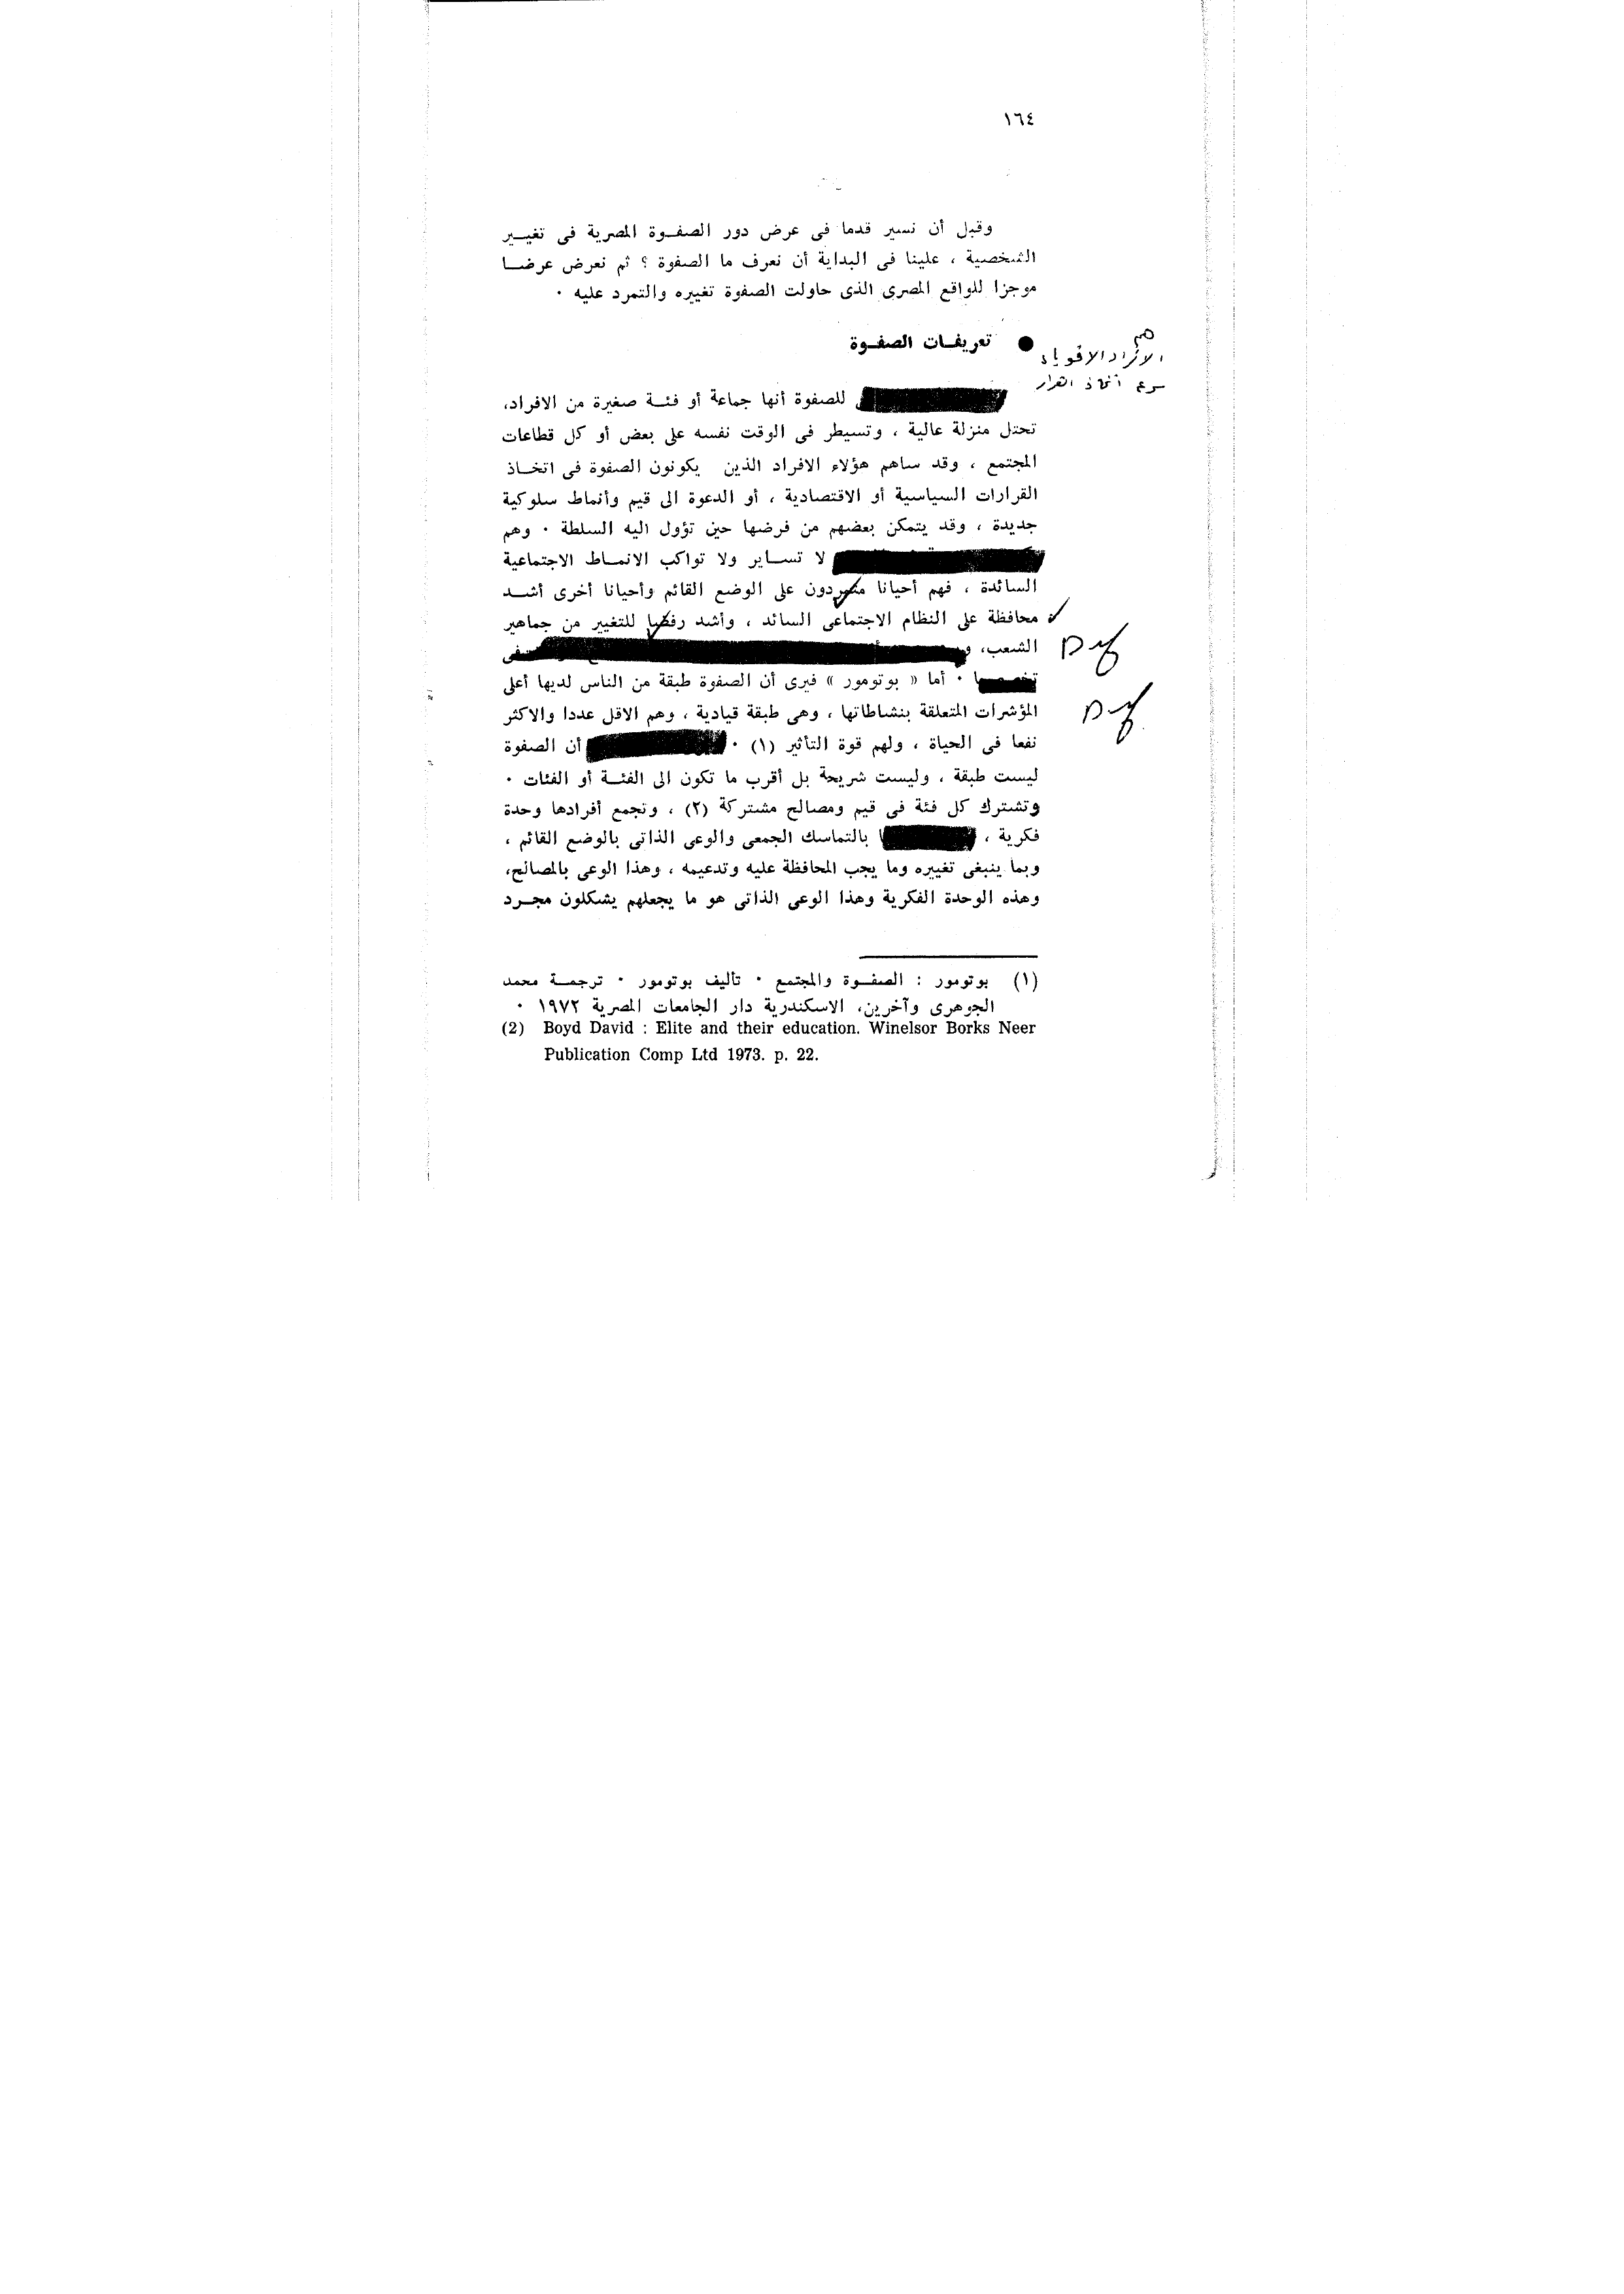 ١٦٤
وقبل أن نسير قدما فى عرض دور الصفــوة المصرية فى تغيــير
الشخصية ، علينا فى البداية أن نعرف ما الصفوة ؟ ثم نعرض عرضــا
موجزا للواقع المصرى الذى حاولت الصفوة تغييره والتمرد عليه ٠
● تعريفــات الصفــوة
هم
الأفراد الاقوياء
للصفوة أنها جماعة أو فئــة صغيرة من الافراد،
تحتل منزلة عالية ، وتسيطر فى الوقت نفسه على بعض أو كل قطاعات
المجتمع ، وقد ساهم هؤلاء الافراد الذين يكونون الصفوة فى اتخــاذ
القرارات السياسية أو الاقتصادية ، أو الدعوة الى قيم وأنماط سلوكية
جديدة ، وقد يتمكن بعضهم من فرضها حين تؤول اليه السلطة ٠ وهم
لا تســاير ولا تواكب الانمــاط الاجتماعية
السائدة ، فهم أحيانا متمردون على الوضع القائم وأحيانا أخرى أشــد
محافظة على النظام الاجتماعى السائد ، وأشد رفضا للتغيير من جماهير
الشعب،
٠ أما « بوتومور » فيرى أن الصفوة طبقة من الناس لديها أعلى
المؤشرات المتعلقة بنشاطاتها ، وهى طبقة قيادية ، وهم الاقل عددا والاكثر
نفعا فى الحياة ، ولهم قوة التأثير (١) ٠ أن الصفوة
ليست طبقة ، وليست شريحة بل أقرب ما تكون الى الفئــة أو الفئات ٠
وتشترك كل فئة فى قيم ومصالح مشتركة (٢) ، وتجمع أفرادها وحدة
فكرية ، بالتماسك الجمعى والوعى الذاتى بالوضع القائم ،
وبما ينبغى تغييره وما يجب المحافظة عليه وتدعيمه ، وهذا الوعى بالمصالح،
وهذه الوحدة الفكرية وهذا الوعى الذاتى هو ما يجعلهم يشكلون مجــرد
(١) بوتومور : الصفــوة والمجتمع ٠ تأليف بوتومور ٠ ترجمــة محمد
الجوهرى وآخرين، الاسكندرية دار الجامعات المصرية ١٩٧٢ ٠
(2) Boyd David : Elite and their education. Winelsor Borks Neer
Publication Comp Ltd 1973. p. 22.